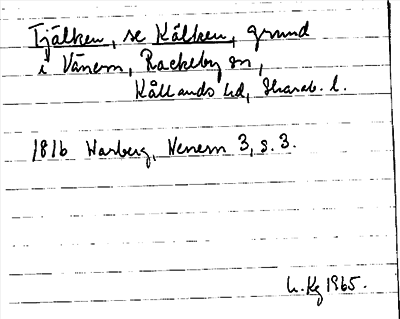 Tjälken, se Kälken, grund
i Vänern, Rackeby sn,
Kållands hd, Skarab. l.
1816 Warberg, Venern 3, s. 3.
h.Kg 1965.